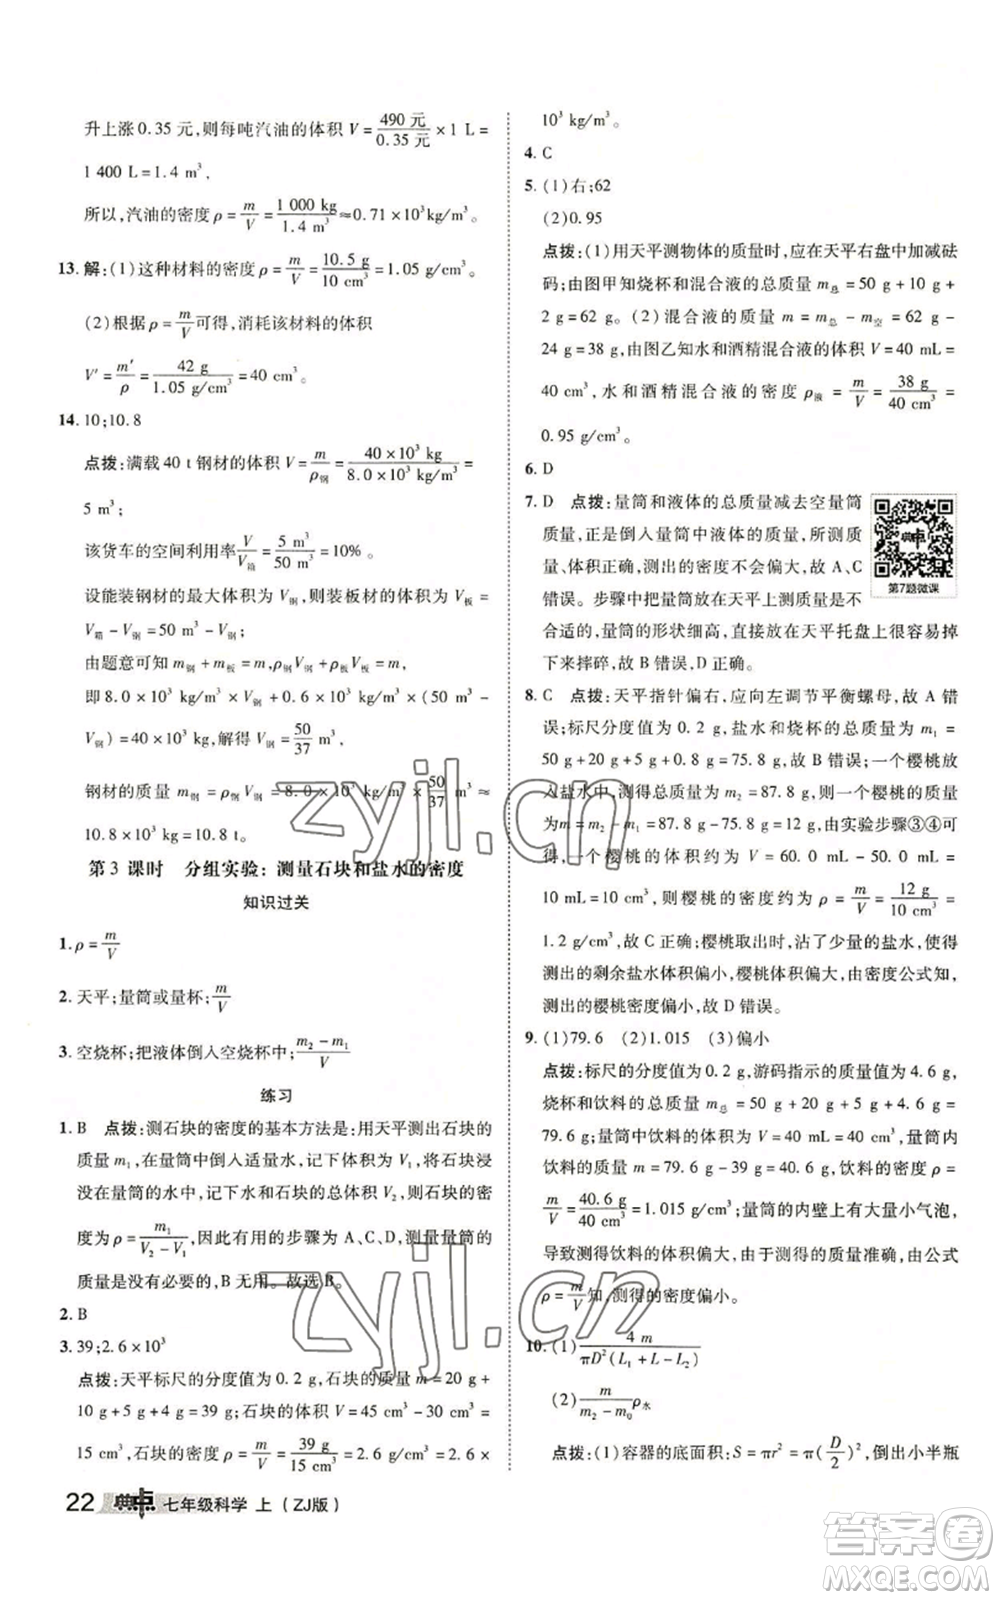 升上涨0.35元,则每吨汽油的体积 V=490 元/0.35 元×1 L=
1 400 L=1.4 m³,
所以,汽油的密度 ρ=m/V=1 000 kg/1.4 m³≈0.71×10³kg/m³。
13. 解:(1)这种材料的密度 ρ=m/V=10.5 g/10 cm³=1.05 g/cm³。
(2)根据 ρ=m/V可得,消耗该材料的体积
V′=m′/ρ=42 g/1.05 g/cm³=40 cm³。
14. 10;10.8
点拨:满载40 t钢材的体积 V=m/ρ钢=40×10³ kg/8.0×10³ kg/m³=
5 m³;
该货车的空间利用率V/V箱=5 m³/50 m³=10%。
设能装钢材的最大体积为 V钢,则装板材的体积为 V板=
V箱-V钢=50 m³-V钢;
由题意可知 m钢+m板=m,ρ钢V钢+ρ板V板=m,
即 8.0×10³ kg/m³×V钢+0.6×10³ kg/m³×(50 m³-
V钢)=40×10³ kg,解得 V钢=50/37 m³,
钢材的质量 m钢=ρ钢V钢=8.0×10³ kg/m³×50/37 m³≈
10.8×10³ kg=10.8 t。
第 3 课时 分组实验:测量石块和盐水的密度
知识过关
1. ρ=m/V
2. 天平;量筒或量杯;m/V
3. 空烧杯;把液体倒入空烧杯中;m₂-m₁/V
练习
1. B 点拨:测石块的密度的基本方法是:用天平测出石块的
质量 m₁,在量筒中倒入适量水,记下水的体积 V₁,将石块浸
没在量筒的水中,记下水和石块的总体积 V₂,则石块的密
度为 ρ=m₁/V₂-V₁,故有用的步骤为 A、C、D,测量量筒的
质量是没有必要的,B 无用。故选 B。
2. B
3. 39;2.6×10³
点拨:天平标尺的分度值为 0.2 g,石块的质量 m=20 g+
10 g+5 g+4 g=39 g;石块的体积 V=45 cm³-30 cm³=
15 cm³,石块的密度 ρ=m/V=39 g/15 cm³=2.6 g/cm³=2.6×
22 典中点 七年级科学 上(ZJ版)
10³ kg/m³。
4. C
5. (1)右;62
(2)0.95
点拨:(1)用天平测物体的质量时,应在天平右盘中加减砝
码;由图甲知烧杯和混合液的总质量 m总=50 g+10 g+
2 g=62 g。(2)混合液的质量 m=m总-m空=62 g-
24 g=38 g,由图乙知水和酒精混合液的体积 V=40 mL=
40 cm³,水和酒精混合液的密度 ρ液=m/V=38 g/40 cm³=
0.95 g/cm³。
6. D
7. D 点拨:量筒和液体的总质量减去空量筒
质量,正是倒入量筒中液体的质量,所测质
量、体积正确,测得的密度不会偏大,故 A、C
错误。步骤中把量筒放在天平上测质量是不
合适的,量筒的形状细高,直接放在天平托盘上很容易掉
下来摔碎,故 B 错误,D 正确。
第7题微课
8. C 点拨:天平指针偏右,应向左调节平衡螺母,故 A 错
误;标尺分度值为 0.2 g,盐水和烧杯的总质量为 m₁=
50 g+20 g+5 g+0.8 g=75.8 g,故 B 错误;一个樱桃放
入盐水中,测得总质量为 m₂=87.8 g,则一个樱桃的质量
为 m=m₂-m₁=87.8 g-75.8 g=12 g,由实验步骤③④可
得,一个樱桃的体积约为 V=50 mL-40 mL=
10 mL=10 cm³,则樱桃的密度约为 ρ=m/V=12 g/10 cm³=
1.2 g/cm³,故 C 正确;樱桃取出时,沾了少量的盐水,使得
测出的剩余盐水体积偏小,樱桃体积偏大,由密度公式知,
测出的樱桃密度偏小,故 D 错误。
9. (1)79.6 (2)1.015 (3)偏小
点拨:标尺的分度值为 0.2 g,游码指示的质量值为 4.6 g,
烧杯和饮料的总质量为 m总=50 g+20 g+5 g+4.6 g=
79.6 g;量筒中饮料的体积为 V=40 mL=40 cm³,量筒内
饮料的质量为 m=79.6 g-39 g=40.6 g,饮料的密度 ρ=
m/V=40.6 g/40 cm³=1.015 g/cm³;量筒的内壁上有大量小气泡,
导致测得饮料的体积偏大,由于测得的质量准确,由公式
ρ=m/V知,测得的密度偏小。
10. (1)4 m/πD²(L₁+L-L₂)
(2)m/m₂-m₀ρ水
点拨:(1)容器的底面积:S=πr²=π(D/2)²,倒出小半瓶
zyjl.cn
zyjl.cn
答案圈